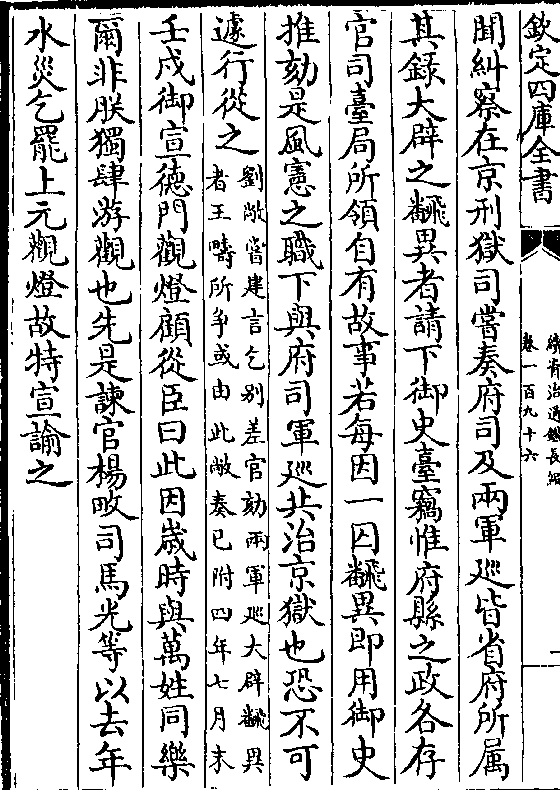 欽定四庫全書
續資治通鑑長編
卷一百九十六
一
聞糾察在京刑獄司嘗奏府司及兩軍巡皆省府所属
其錄大辟之飜異者請下御史臺竊惟府縣之政各存
官司臺局所領自有故事若每因一囚飜異即用御史
推劾是風憲之職下與府司軍巡共治京獄也恐不可
遽行從之
劉敞嘗建言乞别差官劾兩軍巡大辟飜異
者王疇所争或由此敞奏已附四年七月末
壬戌御宣徳門觀燈顧從臣曰此因歳時與萬姓同樂
爾非朕獨肆游觀也先是諫官楊畋司馬光等以去年
水災乞罷上元觀燈故特宣諭之